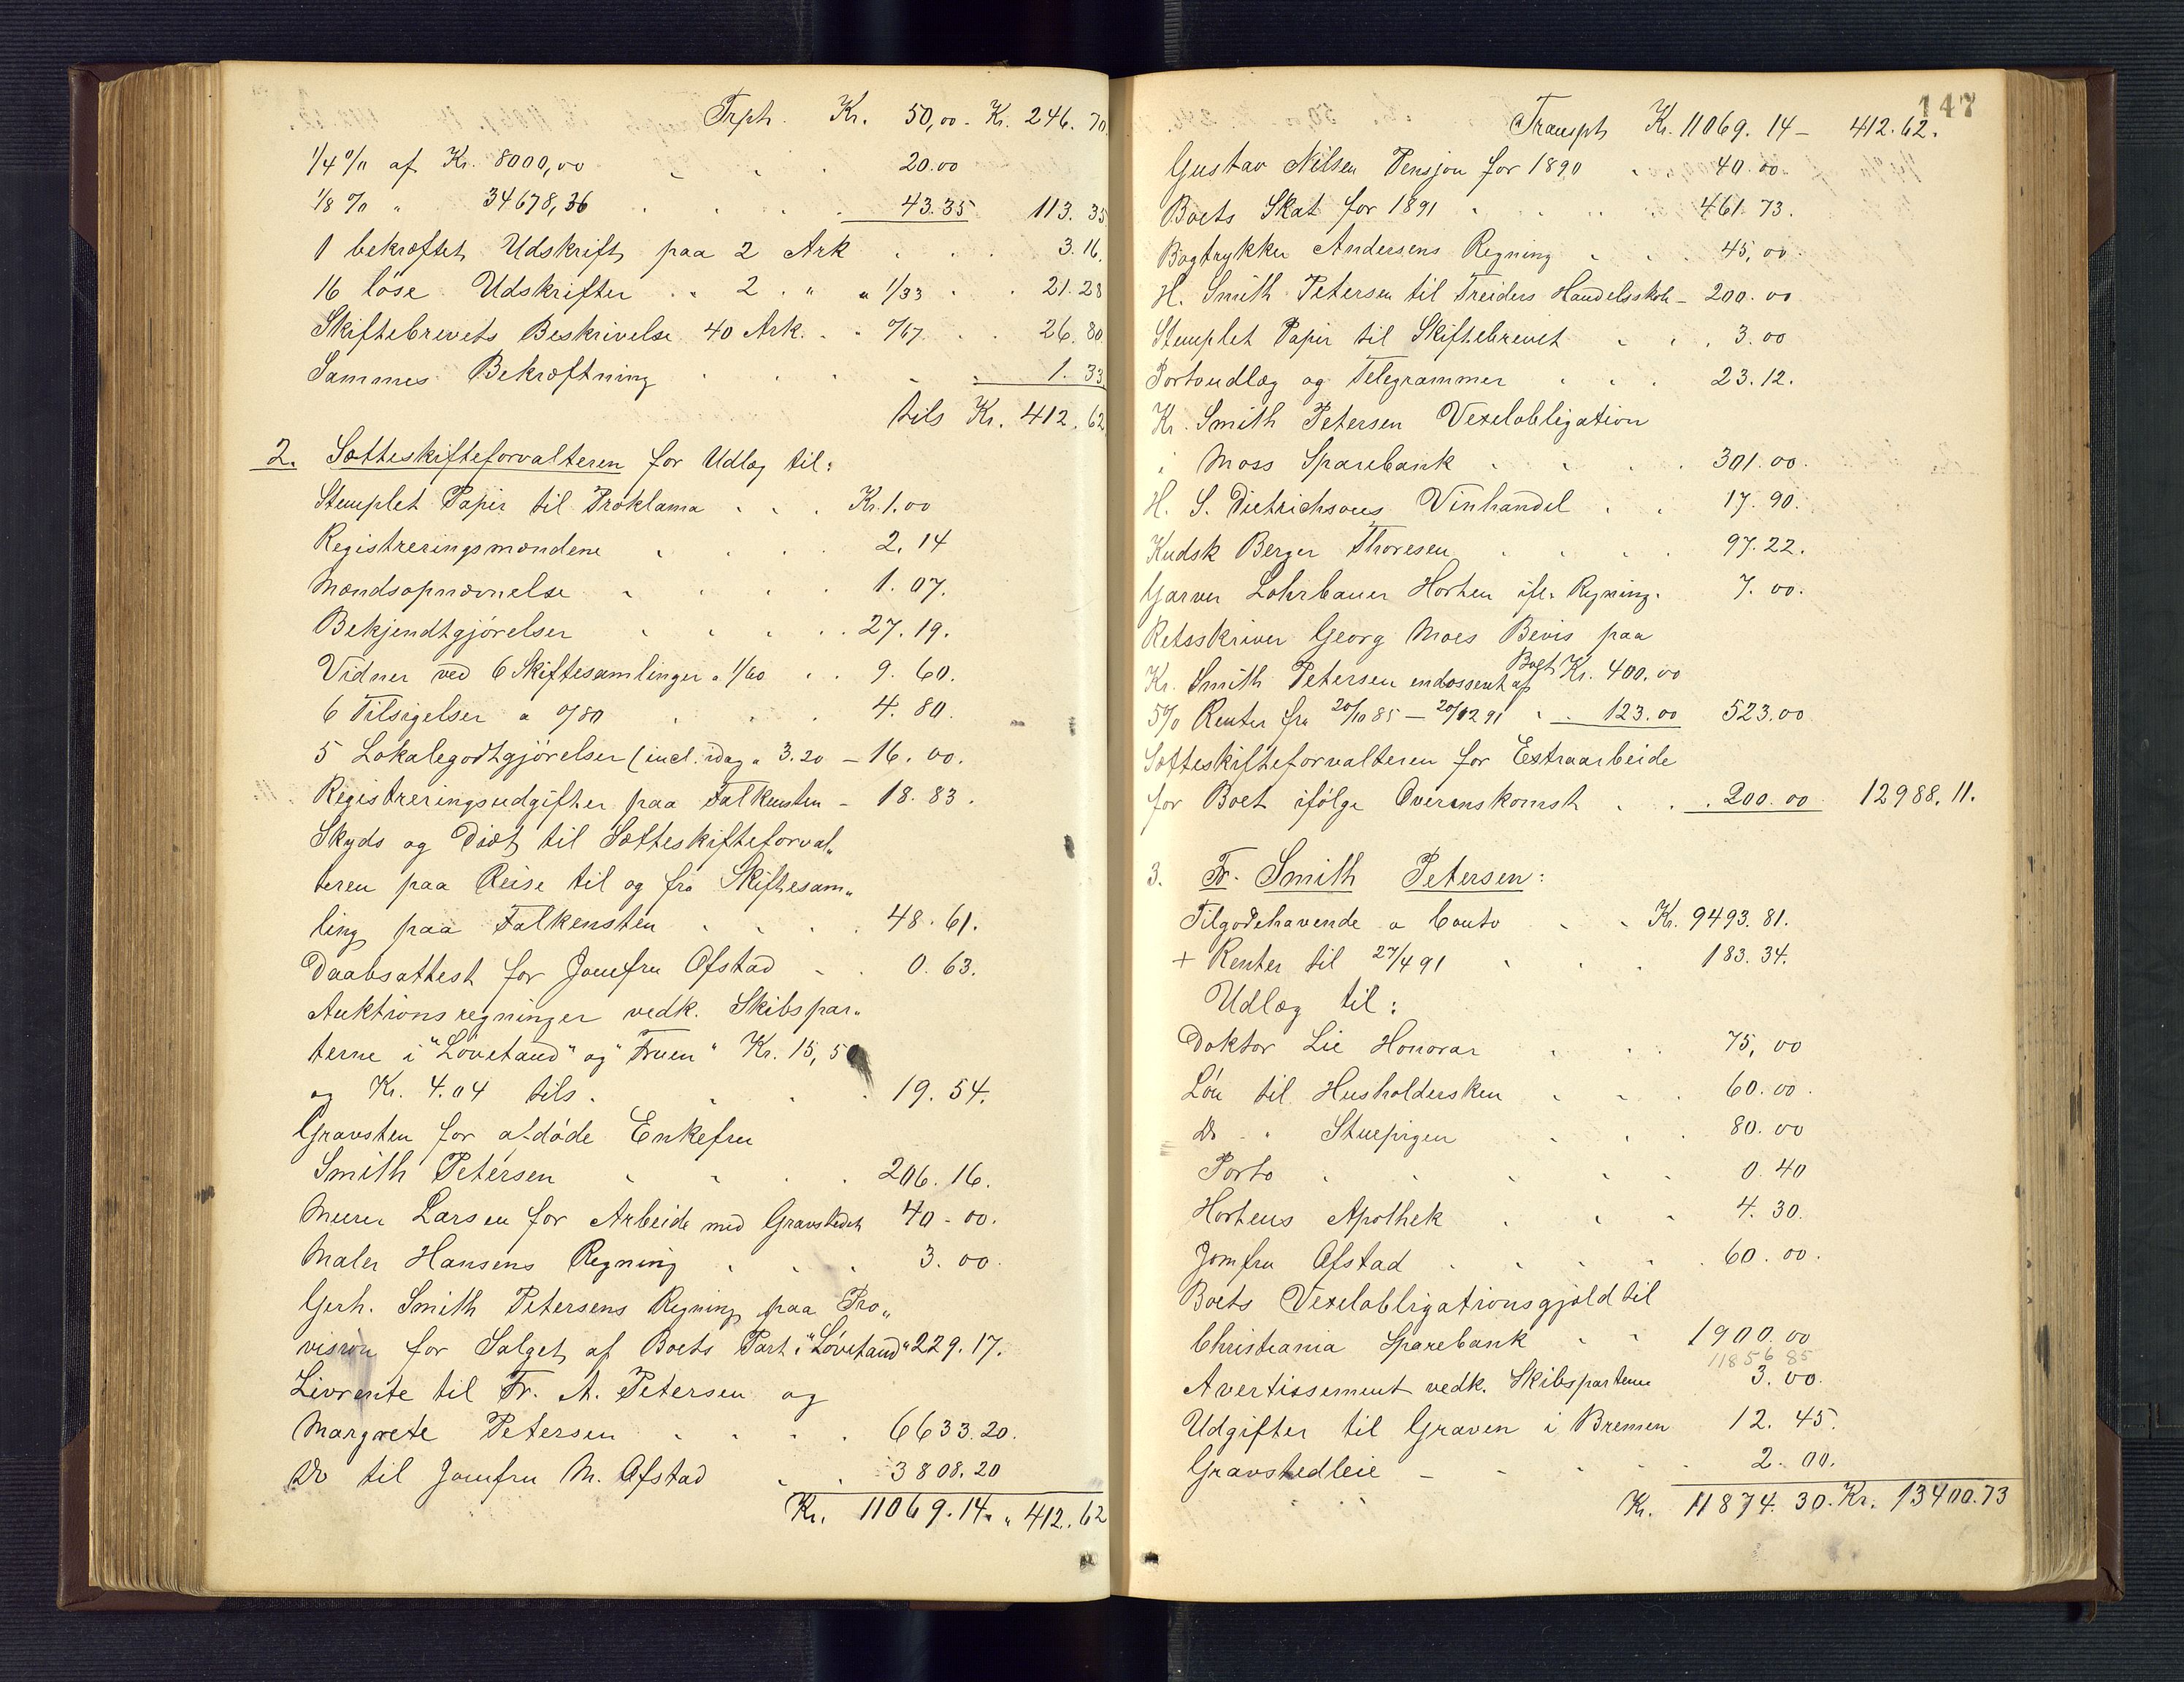 Trph. Kr. 50,00 - Kr. 246.70
1/4 % af Kr. 8000,00 20.00
1/8 % " 34678,36 43.35 113.35
1 bekræftet Udskrift paa 2 Ark 3.16.
16 løse Udskrifter .. 2 . " a 1/33 21.28
Skiftebrevets Beskrivelse 40 Ark. .. 0/67 26.80
Sammes Bekræftning 1.33
tils Kr. 412.62
2. Sætteskifteforvalteren for Udlæg til:
Stemplet Papir til Proklama Kr. 1.00
Registreringsmændene 2.14
Mændsopnævnelse 1.07.
Bekjendtgjørelser 27.19.
Vidner ved 6 Skiftesamlinger a 1/60 9.60.
6 Tilsigelser a 0/80 4.80.
5 Lokalegodtgjørelser (incl. idag a 3.20 - 16.00.
Registreringsudgifter paa Falkensten - 18.83.
Skyds og Diæt til Sætteskifteforval„
teren paa Reise til og fra Skiftesam„
ling paa Falkensten 48.61.
Daabsattest for Jomfru Ofstad 0.63.
Auktionsregninger vedk. Skibspar„
terne i "Løvetand" og "Fruen" Kr. 15,50
og Kr. 4.04 tils. 19.54.
Gravsten for afdøde Enkefru
Smith Petersen 206.16.
Murer Larsen for Arbeide med Gravstedet 40-00.
Maler Hansens Regning 3.00.
Gerh. Smith Petersens Regning paa Pro„
vision for Salget af Boets Part i "Løvetand" 229.17.
Livrente til Fr. A. Petersen og
Margrete Petersen 6633.20.
Do til Jomfru M. Ofstad 3808.20
Kr. 11069.14 „ „ 412.62
147
Transpt Kr. 11069.14 - 412.62.
Gustav Nilsen Pensjon for 1890 40.00.
Boets Skat for 1891 461.73.
Bogtrykker Andersens Regning 45,00.
H. Smith Petersen til Treiders Handelsskole - 200.00
Stemplet Papir til Skiftebrevet 3.00
Portoudlæg og Telegrammer 23.12.
Kr. Smith Petersen Vexelobligation
i Moss Sparebank 301.00.
H. S. Dietrichsons Vinhandel 17.90.
Kudsk Berger Thoresen 97.22.
Garver Lohrbauer Horten ifl. Regning. 7.00.
Retsskriver Georg Moes Bevis paa
Kr. Smith Petersen endosseret af Boet Kr. 400.00
5% Renter fra 20/10 85 - 20/12 91 123.00 523.00
Sætteskifteforvalteren for Extraarbeide
for Boet ifølge Overenskomst 200.00 12988.11.
3. Fr. Smith Petersen:
Tilgodehavende a Conto Kr. 9493.81.
+ Renter til 27/4 91 183.34.
Udlæg til:
Doktor Lie Honorar 75,00
Løn til Husholdersken 60.00.
Do - " Stuepigen 80.00
Porto 0.40
Hortens Apothek 4.30.
Jomfru Ofstad 60.00.
Boets Vexelobligationsgjæld til
Christiania Sparebank 1900.00
11856 85
Avertissement vedk. Skibsparterne 3.00.
Udgifter til Graven i Bremen 12.45.
Gravstedleie - 2.00.
Kr. 11874.30. Kr. 13400.73